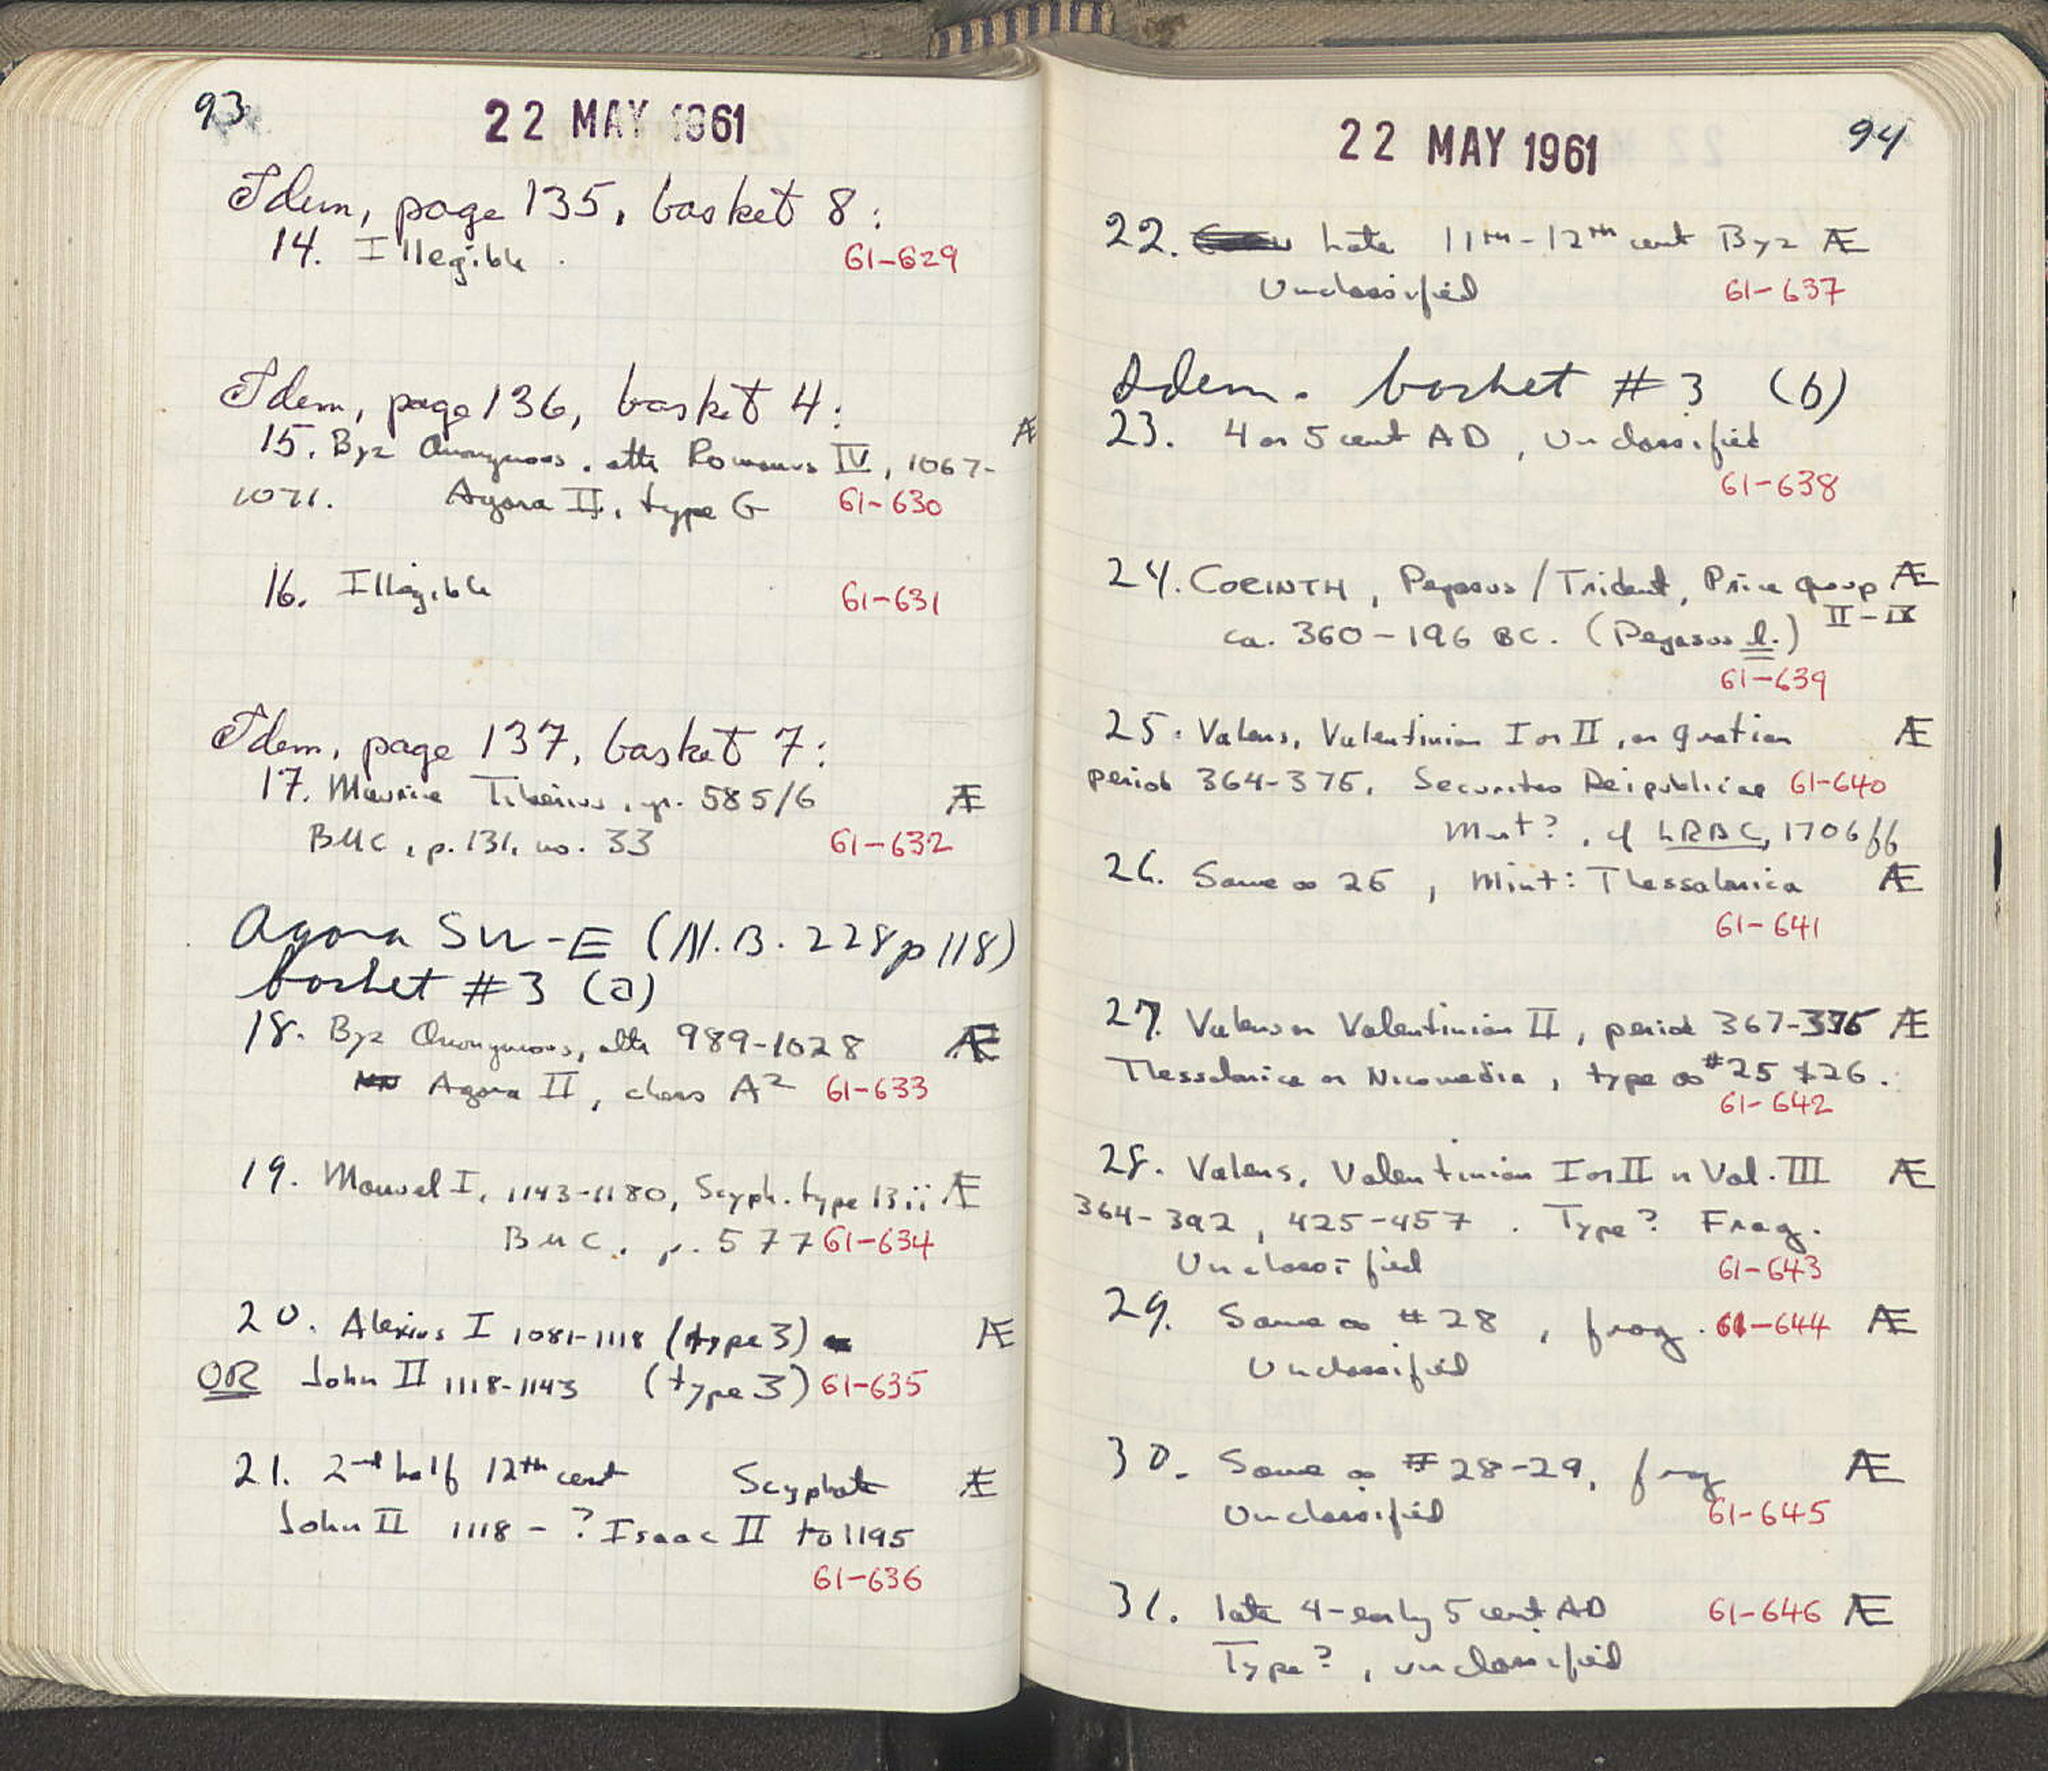 93
22 MAY 1961
Idem, page 135, basket 8:
14. Illegible. 61-629
Idem, page 136, basket 4:
15. Byz Anonymous, attr Romanus IV, 1067- Æ
1071. Agora II, type G 61-630
16. Illegible 61-631
Idem, page 137, basket 7:
17. Maurice Tiberius, yr. 585/6 Æ
BMC, p. 131, no. 33 61-632
Agora SW-E (N.B. 228 p 118)
basket #3 (a)
18. Byz Anonymous, attr 989-1028 Æ
Agora II, class A2 61-633
19. Manuel I, 1143-1180, Scyph. type 13ii Æ
BMC, p. 577 61-634
20. Alexius I 1081-1118 (type 3) Æ
OR John II 1118-1143 (type 3) 61-635
21. 2nd half 12th cent Scyphate Æ
John II 1118 - ? Isaac II to 1195
61-636
94
22 MAY 1961
22. Late 11th-12th cent Byz Æ
Unclassified 61-637
Idem. basket #3 (b)
23. 4 or 5 cent AD, Unclassified
61-638
24. CORINTH, Pegasus/Trident, Price group Æ
II-IX
ca. 360-196 BC. (Pegasus l.)
61-639
25. Valens, Valentinian I or II, or Gratian Æ
period 364-375, Securitas Reipublicae 61-640
Mint?, cf LRBC, 1706 ff
26. Same as 25, Mint: Thessalonica Æ
61-641
27. Valens or Valentinian II, period 367-375 Æ
Thessalonica or Nicomedia, type as #25 & 26.
61-642
28. Valens, Valentinian I or II or Val. III Æ
364-392, 425-457. Type? Frag.
Unclassified 61-643
29. Same as #28, frag. 61-644 Æ
Unclassified
30. Same as #28-29, frag Æ
Unclassified 61-645
31. late 4-early 5 cent AD 61-646 Æ
Type?, unclassified